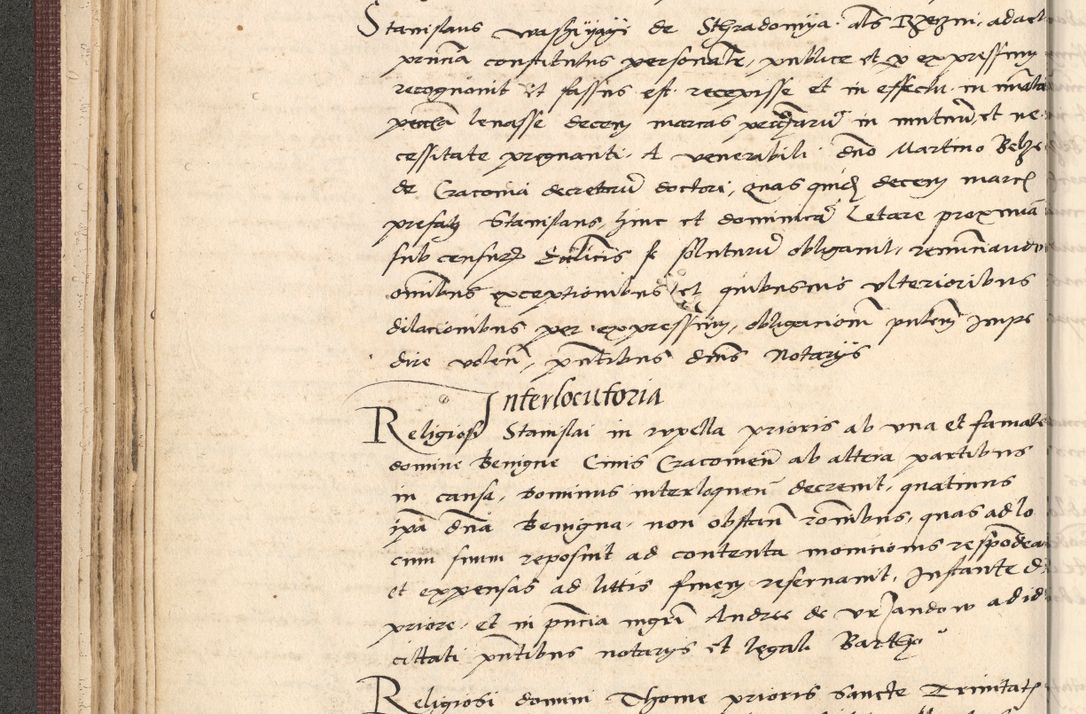 Stanislaus de Sthradomya als ad act
pñciã constitutus personalr, publice et expressim
recognovit et fassus est recepisse et in effectu in
levasse decem marcas in mutuũ et ne
cessitate pregnanti A venerabili dño Martino
de Cracovia decretorũ doctori, quas quidem decem marc
prefatus Stanislaus hinc et dominicã Letare proximã
sub censuris Ecclicis se soluturũ obligavit, renunciando
omnibus exceptionibus et quibusvis ulterioribus
dilacionibus per expressim, obligacionem
volen, pñtibus dñis Notarys
Interlocutoria
Religiosi Stanislai in rupella prioris ab una et famate
domine Benigne Civis Cracovien ab altera partibus
in causa, Dominus interloquen decrevit, quatinus
ipã dña Benigna non obstan rõnibus, quas ad lo
cum suum reposuit ad contenta monicionis respondeat
et expensas ad littis finem reservavit, Instante d
priore, et in pñcia mgri Andree de ad id
cittati pñtibus notarys et legali
Religiosi domini Thome prioris sancte Trinitatis